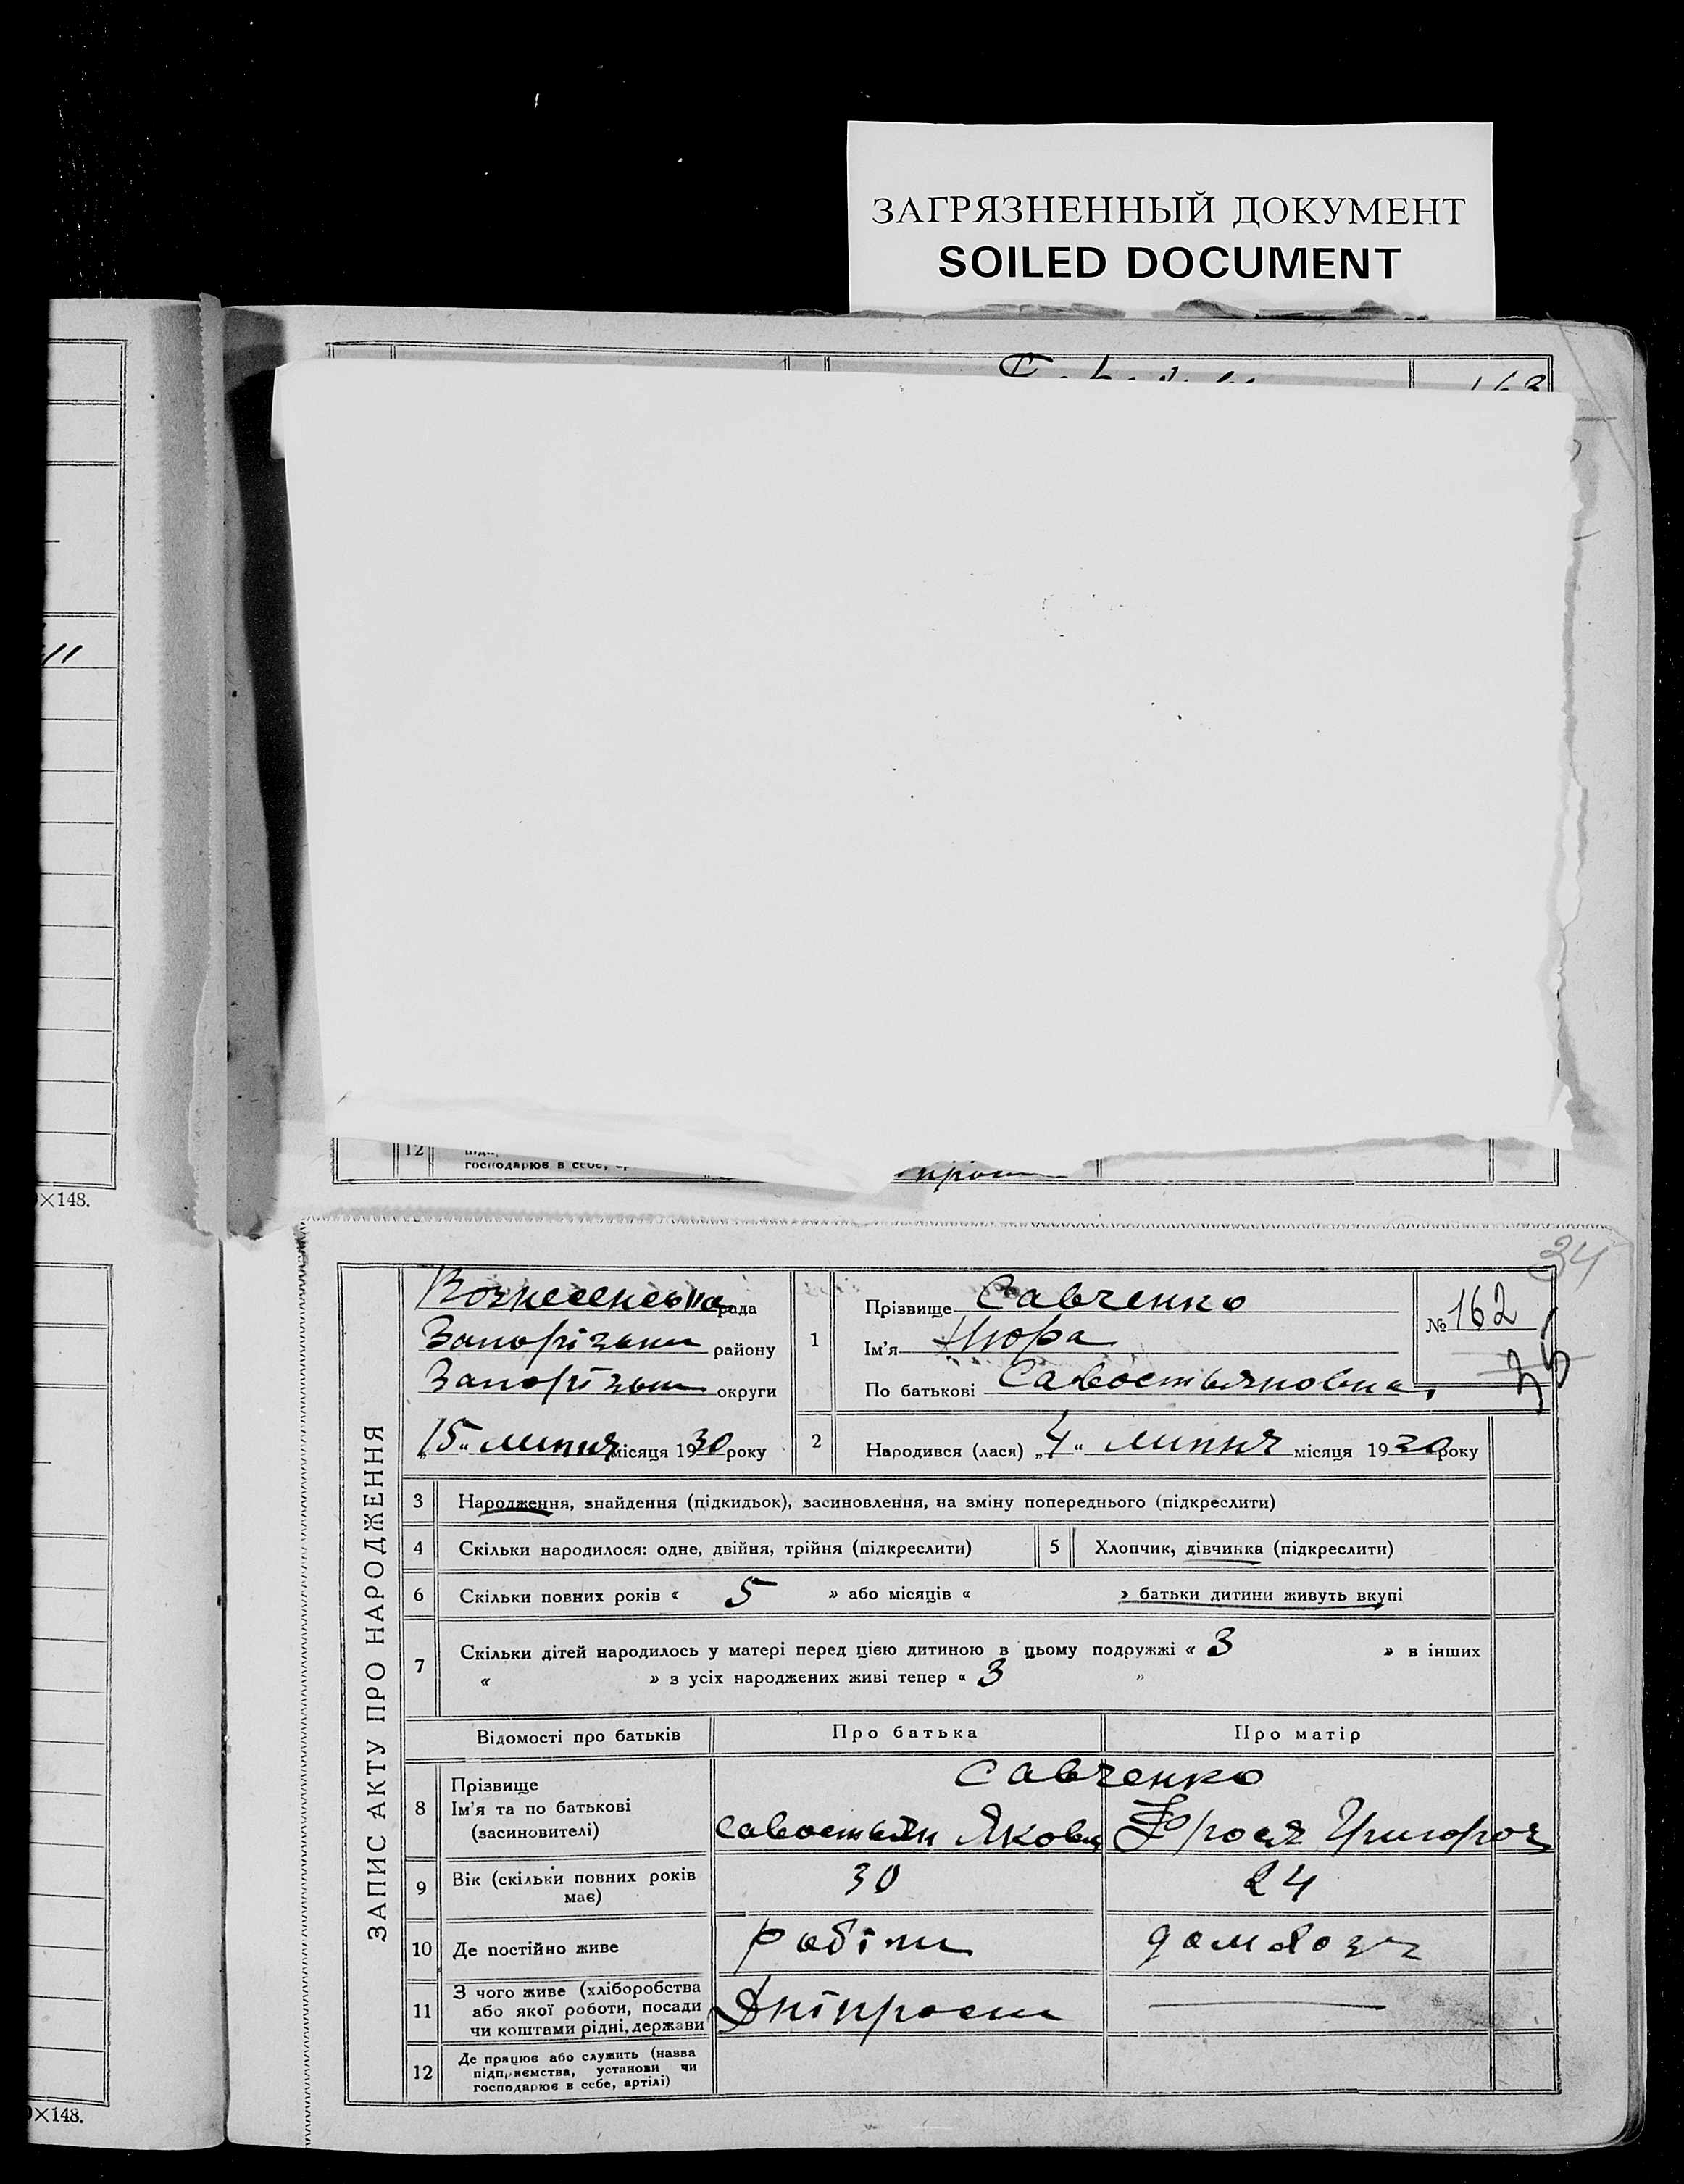 ЗАГРЯЗНЕННЫЙ ДОКУМЕНТ
SOILED DOCUMENT
12
господарює в себе,
×148.
34
ЗАПИС АКТУ ПРО НАРОДЖЕННЯ
Вознесенська рада
району
округи
„15“ липня місяця 1930 року
1
Прізвище Савченко
Ім'я Нюра
По батькові Савостьяновна
№ 162
35
2
Народився (лася) „4“ липня місяця 1930 року
3 Народження, знайдення (підкидьок), засиновлення, на зміну попереднього (підкреслити)
4 Скільки народилося: одне, двійня, трійня (підкреслити) 5 Хлопчик, дівчинка (підкреслити)
6 Скільки повних років « 5 » або місяців « » батьки дитини живуть вкупі
7 Скільки дітей народилось у матері перед цією дитиною в цьому подружжі « 3 » в інших
« » з усіх народжених живі тепер « 3 »
Відомості про батьків Про батька Про матір
8 Прізвище Савченко
Ім'я та по батькові
(засиновителі) Савостьян Яков Фрося Григоро
9 Вік (скільки повних років має) 30 24
10 Де постійно живе робітн домохоз
11 З чого живе (хліборобства
або якої роботи, посади
чи коштами рідні, держави Дніпрост —
12 Де працює або служить (назва
підприємства, установи чи
господарює в себе, артілі)
×148.